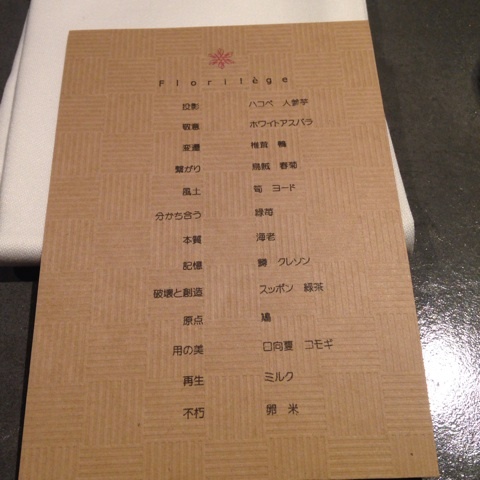 Florilège
投影 ハコベ 人参芋
敬意 ホワイトアスパラ
変遷 椎茸 鴨
繋がり 烏賊 春菊
風土 筍 ヨード
分かち合う 緑苺
本質 海老
記憶 鱒 クレソン
破壊と創造 スッポン 緑茶
原点 鳩
用の美 日向夏 コモギ
再生 ミルク
不朽 卵 米